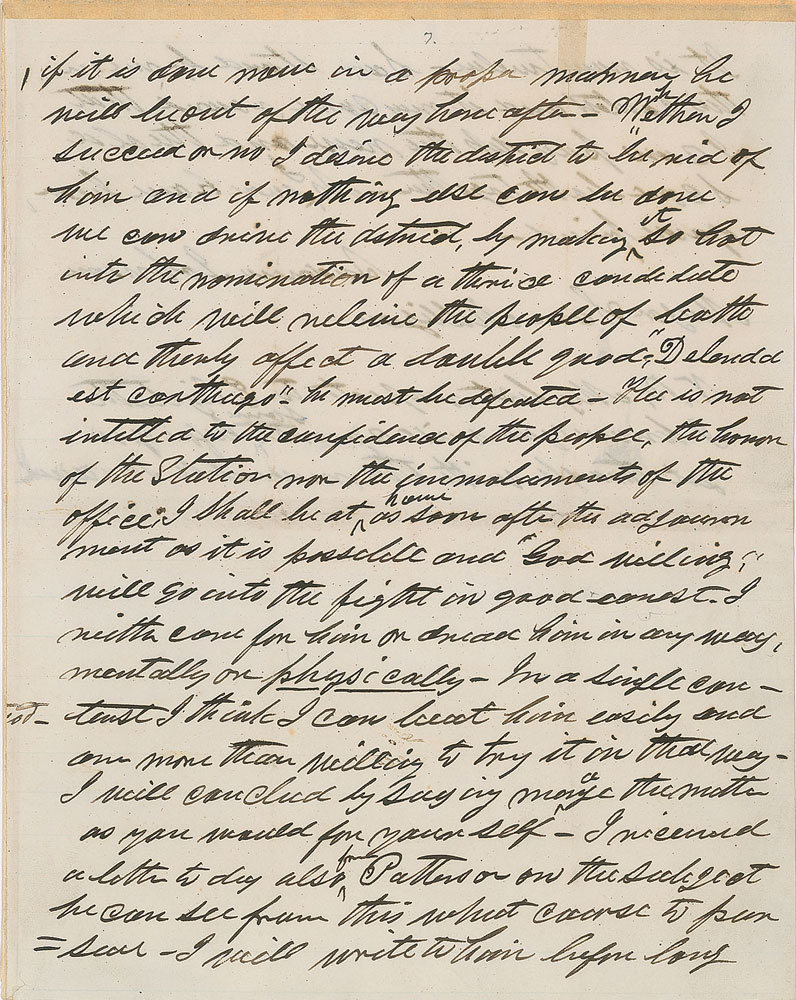 7.
if it is done now in a proper manner he
will be out of the way here after – Wether I
succeed or no I desire the district to be rid of
him and if nothing else can be done
we can drive the district, by making it so hot
into the nomination of a thrice candidate
which will releive the people of both
and therby affect a double good, "Delenda
est carthago" – he must be defeated – He is not
intitled to the confidence of the people, the honor
of the Station nor the immoluments of the
office; I shall be at home as soon after the adjourn
ment as it is possible and "God willing;"
will go into the fight in good earnest – I
neither care for him or dread him in any way,
mentally or physically – In a single con–
test I think I can beat him easily and
am more than willing to try it in that way –
I will conclud by saying manage the matter
as you would for your self – I received
a letter to day also from Patterson on the subject
he can see from this what course to pur
= sue – I will write to him before long